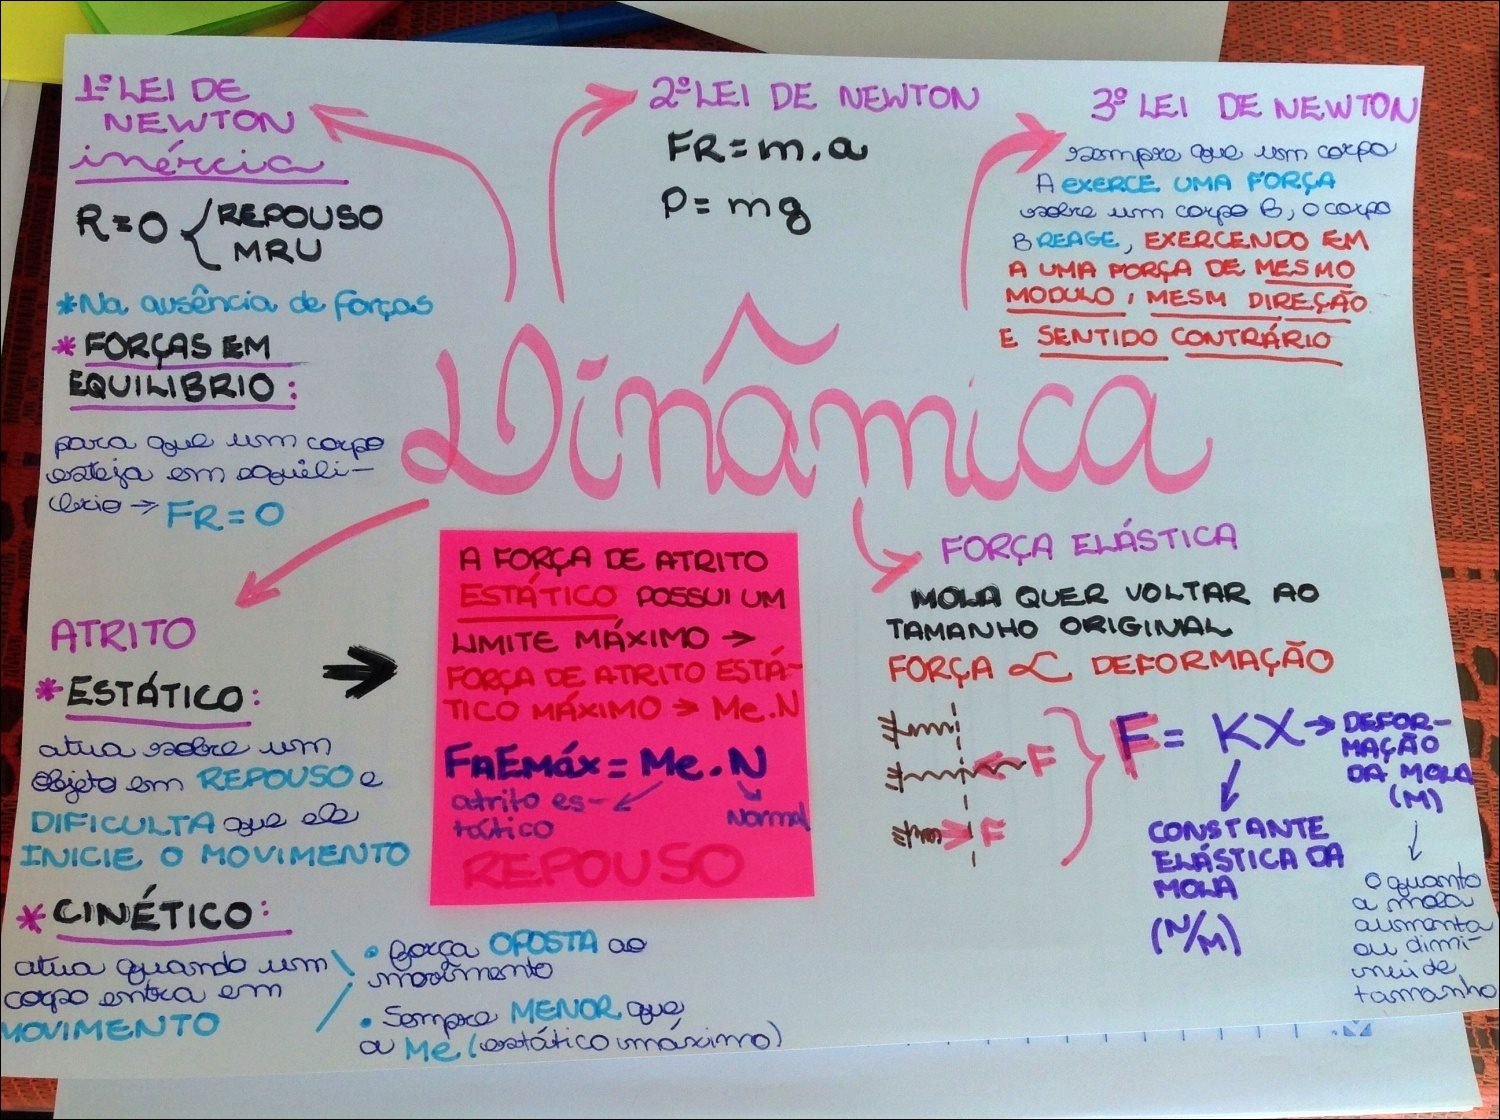 1º LEI DE
NEWTON
inércia
R=0 { REPOUSO
MRU
*Na ausência de forças
* FORÇAS EM
EQUILIBRIO:
para que um corpo
esteja em equili-
brio → FR = 0
2º LEI DE NEWTON
FR = m.a
P = mg
3º LEI DE NEWTON
sempre que um corpo
A EXERCE UMA FORÇA
sobre um corpo B, o corpo
B REAGE, EXERCENDO EM
A UMA FORÇA DE MESMO
MODULO, MESM DIREÇÃO
E SENTIDO CONTRÁRIO
Dinâmica
ATRITO
* ESTÁTICO:
atua sobre um
objeto em REPOUSO e
DIFICULTA que ele
INICIE O MOVIMENTO
* CINÉTICO:
atua quando um
corpo entra em
MOVIMENTO
• força OPOSTA ao
movimento
• Sempre MENOR que
a Me (estático máximo)
A FORÇA DE ATRITO
ESTÁTICO POSSUI UM
LIMITE MÁXIMO →
FORÇA DE ATRITO ESTÁ-
TICO MÁXIMO → Me.N
FAEmáx = Me.N
atrito es-
tático
Normal
REPOUSO
FORÇA ELÁSTICA
MOLA QUER VOLTAR AO
TAMANHO ORIGINAL
FORÇA ∝ DEFORMAÇÃO
F
F
F = KX → DEFOR-
MAÇÃO
DA MOLA
(M)
CONSTANTE
ELÁSTICA DA
MOLA
(N/M)
O quanto
a mola
aumenta
ou dimi-
nui de
tamanho